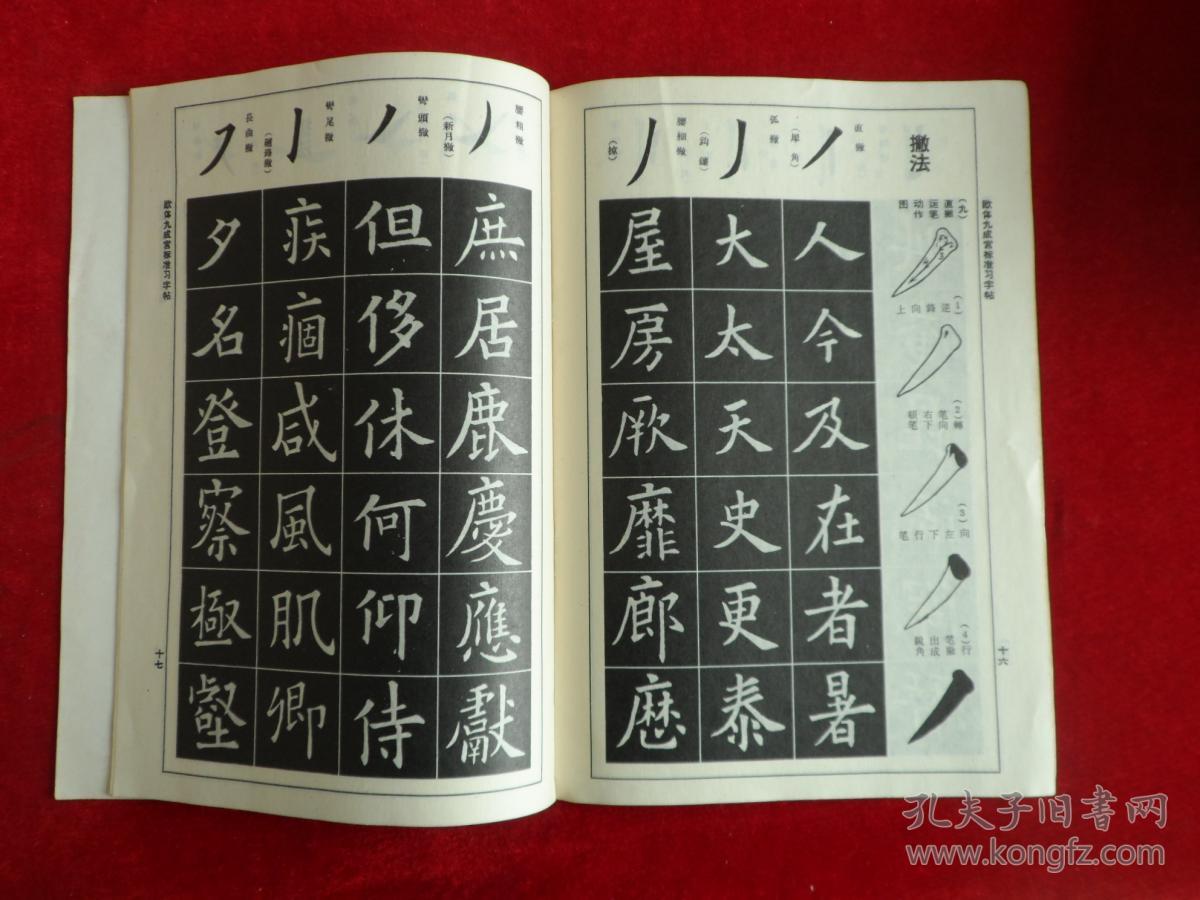 欧体九成宫标准习字帖
十六
撇法
(九)直撇运笔动作图
(1)逆鋒向上
(2)轉笔向右下頓笔
(3)向左下行笔
(4)行笔撇出成鋭角
直撇
(犀角)
人今及在者暑
弧撇
(鈎鐮)
大太天史更泰
腰粗撇
(掠)
屋房厥靡廊歷
腰粗撇
(新月撇)
庶居鹿慶應獻
彎頭撇
但侈休何仰侍
彎尾撇
疾痼咸風肌卿
長曲撇
夕名登察極壑
欧体九成宫标准习字帖
十七
孔夫子旧书网
www.kongfz.com